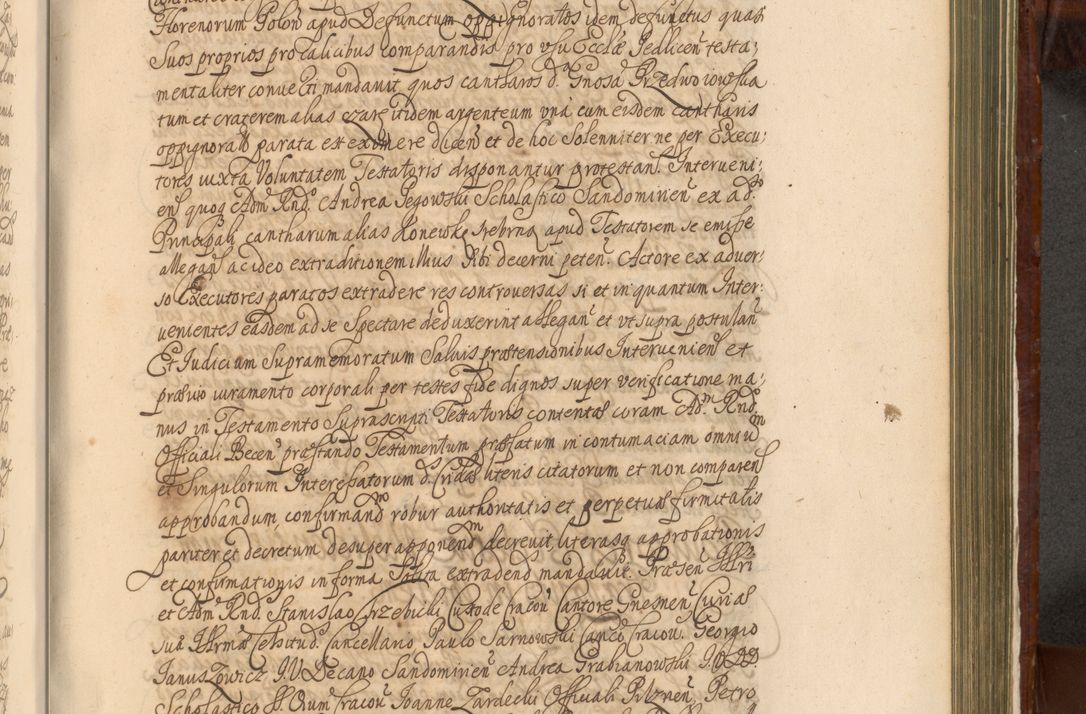 Florenorum Polon apud Defunctum oppignoratos idem defunctus quas
Suos proprios pro calicibus comparandis pro vsu Ecclæ testa;
mentaliter conuerti mandauit quos cantharos d. Gnosa Przedwoiowska
tum et craterem alias czarę itidem argenteum vna cum eisdem cantharis
oppignorat parata est eximere dicen et de hoc Solenniter ne per Execu:
tores iuxta Voluntatem Testatoris disponantur protestan. Interueni:
en quoq Adm Rnd. Andrea Pegowski Scholastico Sandomirien ex ad.
Principali cantharum alias Konewkę srebrną apud Testatorem se emisse
allegan ac ideo extraditionem illius sibi decerni peten. Actore ex aduer
so Executores paratos extradere res controuersas si et in quantum Inter:
uenientes easdem ad se Spectare deduxerint allegan et vt supra postulan
Et Iudicium Supramemoratum Saluis prætensionibus Interuenien et
præuio iuramento corporali per testes fide dignos super verificatione ma;
nus in Testamento Suprascripti Testatoris contenta coram Adm. Rnd
Officiali Becen præstando Testamentum præfatum in contumaciam omniu
et Singulorum Interessatorum d. citatorum et non comparen
approbandum, confirmand robur authoritatis et perpetuæ firmitatis
pariter et decretum desuper apponend decreuit literasq approbationis
et confirmationis in forma Solita extradend mandauit. Præsen Illri
et Adm Rnd. Stanislao Krzebicki Custode Cracou Cantore Gnesnen Curiæ
suæ Illrmæ Celsitud. Cancellario Paulo Sarnowski Canco Cracou. Georgio
Ianuszowicz I.V. Decano Sandomirien Andrea Grabianowski I.V.D.
Scholastico Cracou Ioanne Tardecki Officiali Pilznen Petro